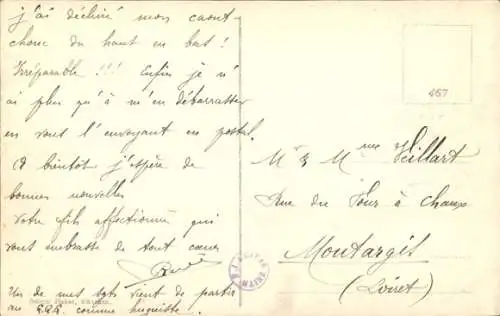 j'ai déchiré mon caout-
chouc du haut en bas !
Irréparable !!! Enfin je n'
ai plus qu'à m'en débarrasser
en vous l'envoyant en postal.
A bientôt j'espère de
bonnes nouvelles
Votre fils affectionné qui
vous embrasse de tout cœur
Un de mes sgts vient de partir
au comme linguiste.
467
Mr & Mme Veillart
Rue du Four à Chaux
Montargis
(Loiret)